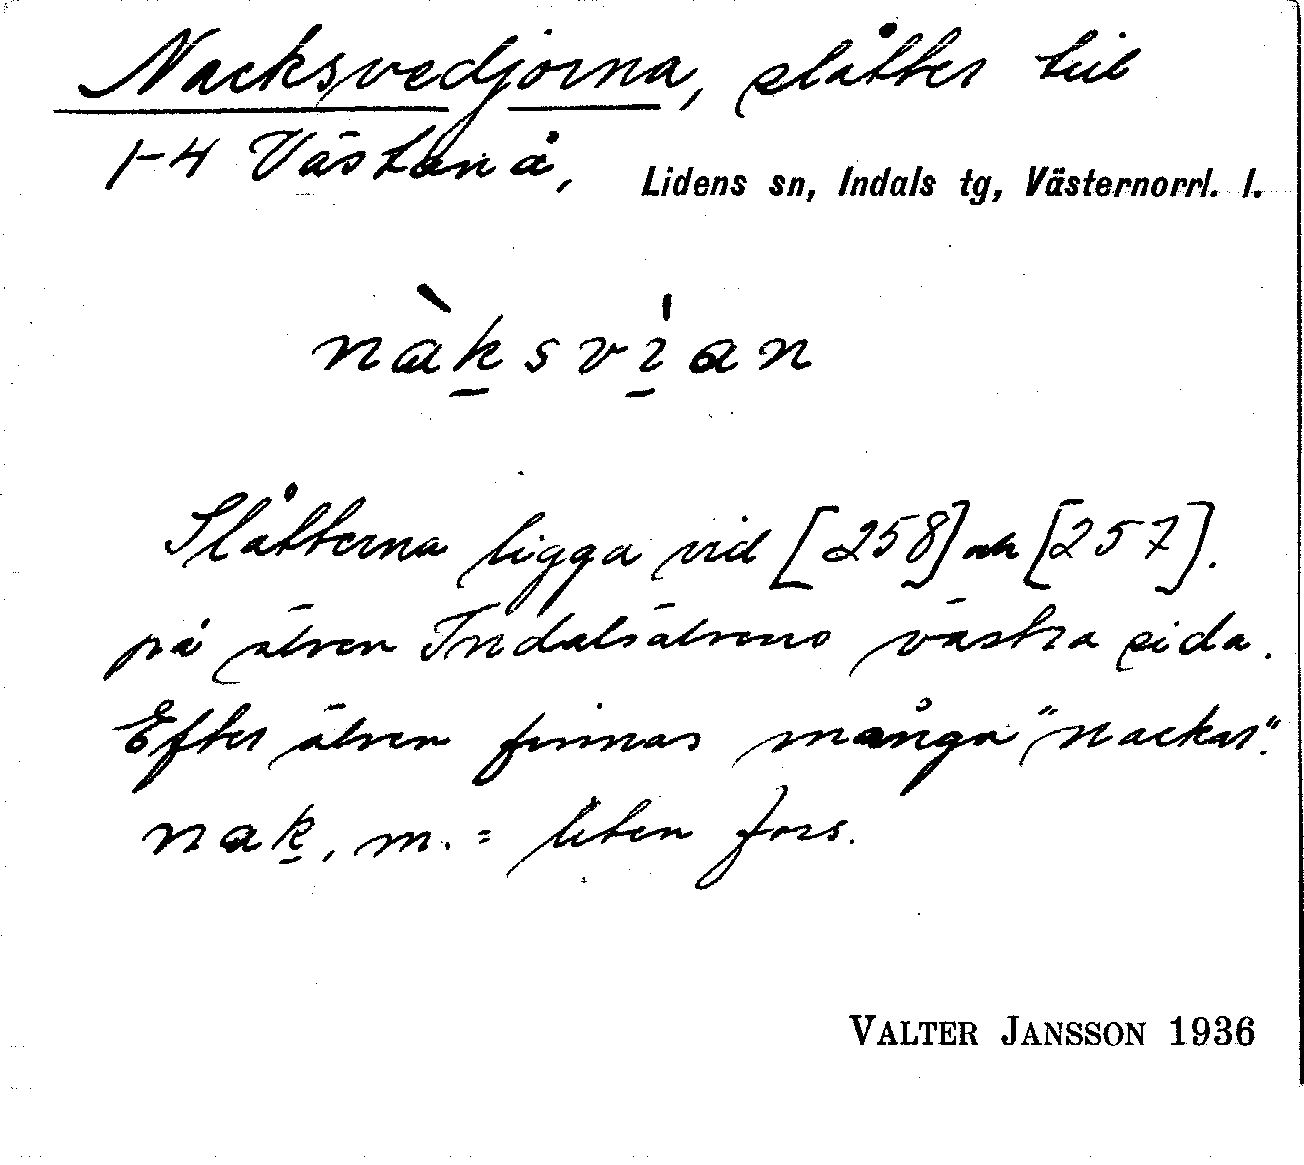 Nacksvedjorna, slåtter till
1-4 Västanå, Lidens sn, Indals tg, Västernorrl. l.
nàk̲svi̲̍an
Slåtterna ligga vid [258] och [257].
på älven Indalsälvens västra sida.
Efter älven finnas många "nackar".
nak̲, m. = liten fors.
VALTER JANSSON 1936